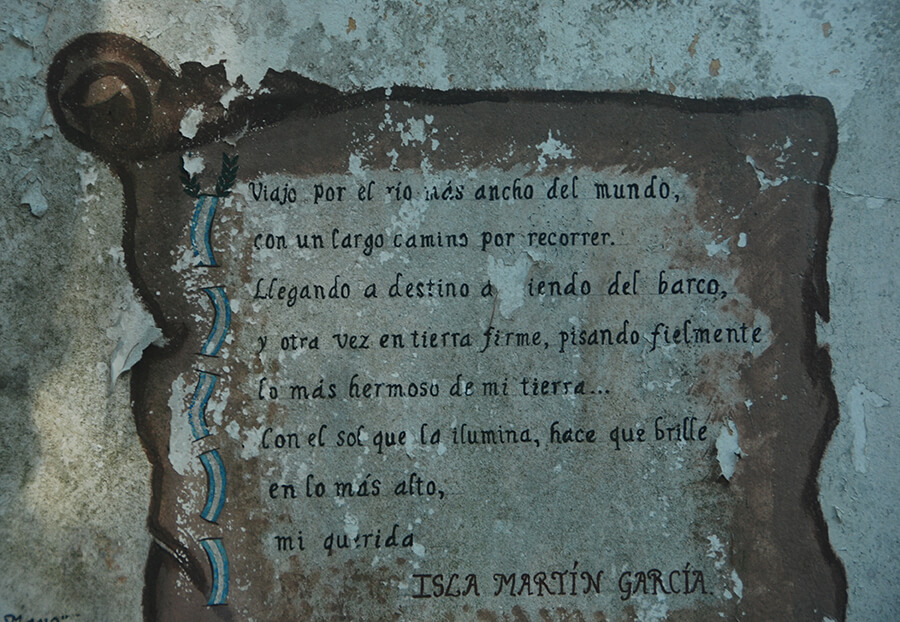 Viajo por el río más ancho del mundo,
con un largo camino por recorrer.
Llegando a destino iendo del barco,
y otra vez en tierra firme, pisando fielmente
lo más hermoso de mi tierra...
Con el sol que la ilumina, hace que brille
en lo más alto,
mi querida
ISLA MARTÍN GARCÍA.